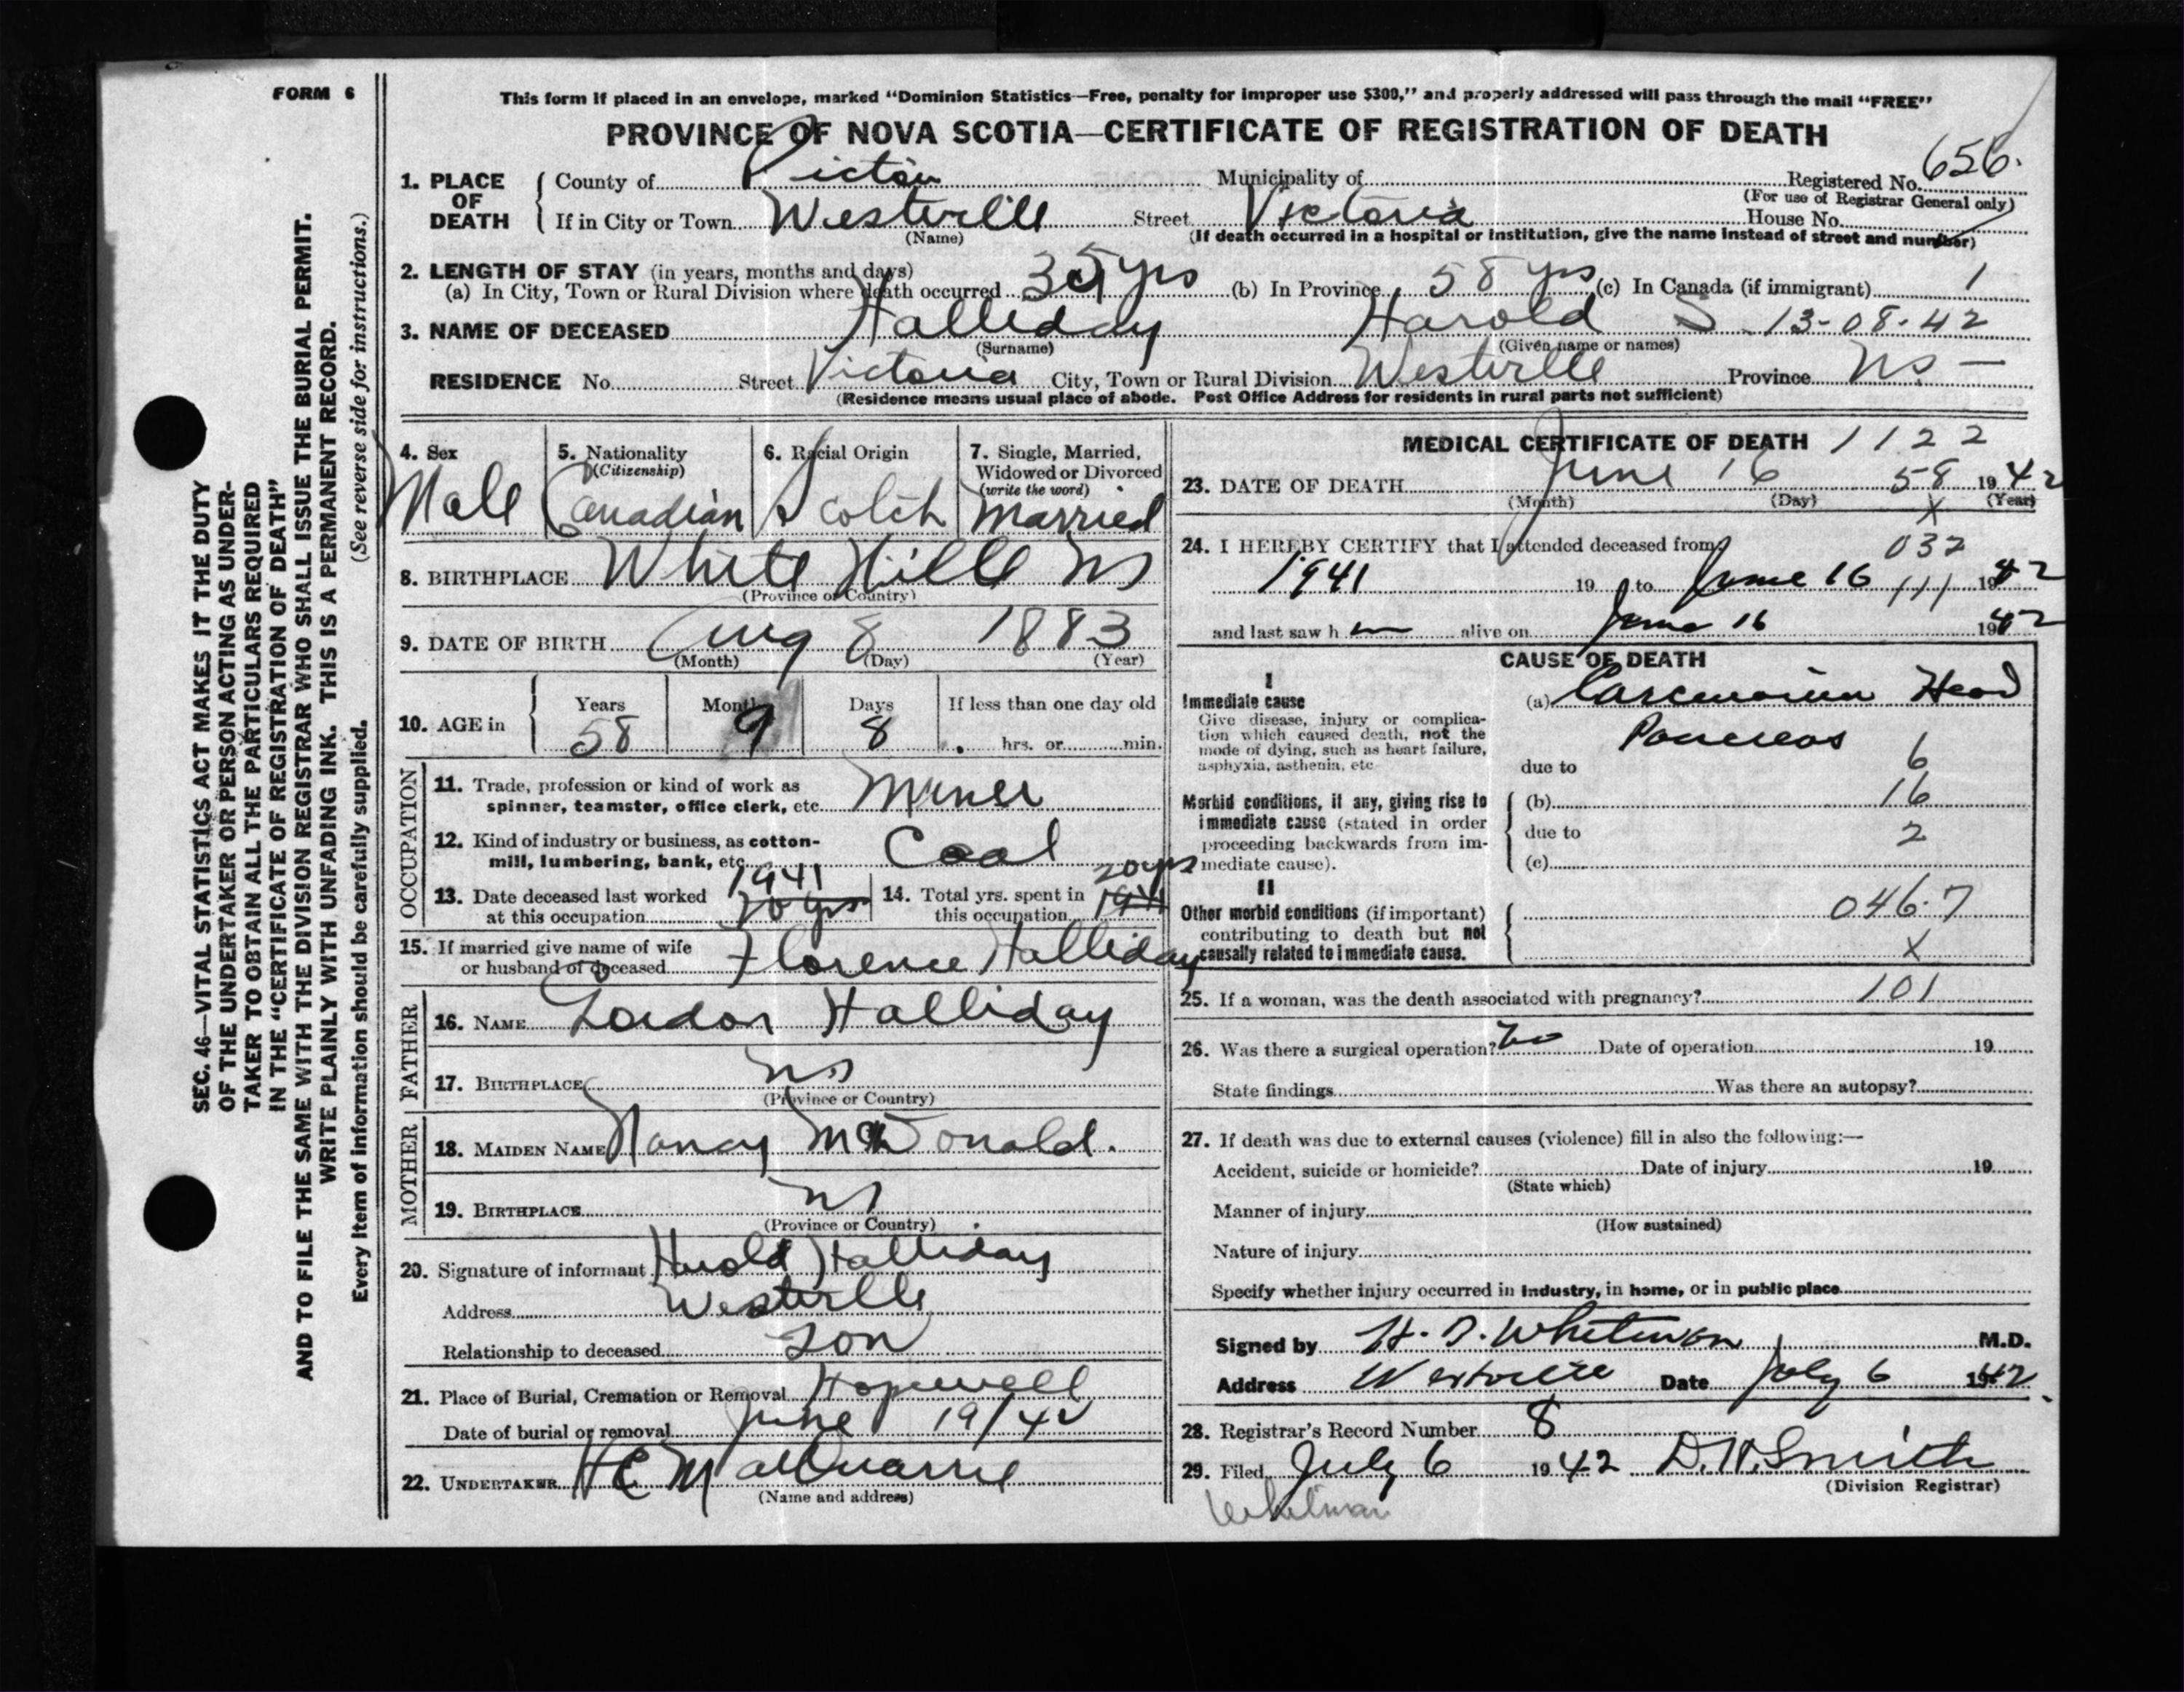 FORM 6
This form if placed in an envelope, marked "Dominion Statistics—Free, penalty for improper use $300," and properly addressed will pass through the mail "FREE"
PROVINCE OF NOVA SCOTIA—CERTIFICATE OF REGISTRATION OF DEATH
656.
1. PLACE OF DEATH { County of Pictou Municipality of Registered No.
(For use of Registrar General only)
If in City or Town Westville Street Victoria House No.
(Name) (If death occurred in a hospital or institution, give the name instead of street and number)
2. LENGTH OF STAY (in years, months and days)
(a) In City, Town or Rural Division where death occurred 35 yrs (b) In Province 58 yrs (c) In Canada (if immigrant) 1
3. NAME OF DECEASED Halliday Harold S 13-08-42
(Surname) (Given name or names)
RESIDENCE No. Street Victoria City, Town or Rural Division Westville Province NS —
(Residence means usual place of abode. Post Office Address for residents in rural parts not sufficient)
4. Sex 5. Nationality (Citizenship) 6. Racial Origin 7. Single, Married, Widowed or Divorced (write the word)
Male Canadian Scotch Married
8. BIRTHPLACE White Hill NS
(Province or Country)
9. DATE OF BIRTH Aug 8 1883
(Month) (Day) (Year)
10. AGE in { Years Months Days If less than one day old
58 9 8 hrs. or min.
OCCUPATION
11. Trade, profession or kind of work as
spinner, teamster, office clerk, etc. Miner
12. Kind of industry or business, as cotton-
mill, lumbering, bank, etc. Coal
13. Date deceased last worked 1941
at this occupation 20 yrs
14. Total yrs. spent in 20 yrs
this occupation 1941
15. If married give name of wife
or husband of deceased Florence Halliday
FATHER
16. NAME Gordon Halliday
17. BIRTHPLACE NS
(Province or Country)
MOTHER
18. MAIDEN NAME Nancy McDonald.
19. BIRTHPLACE NS
(Province or Country)
20. Signature of informant Harold Halliday
Address Westville
Relationship to deceased Son
21. Place of Burial, Cremation or Removal Hopewell
Date of burial or removal June 19/42
22. UNDERTAKER H C MacQuarrie
(Name and address)
MEDICAL CERTIFICATE OF DEATH 1122
23. DATE OF DEATH June 16 58 1942
(Month) (Day) X (Year)
24. I HEREBY CERTIFY that I attended deceased from 032
1941 19 to June 16 111 1942
and last saw h im alive on June 16 1942
CAUSE OF DEATH
I
Immediate cause
Give disease, injury or complica-
tion which caused death, not the
mode of dying, such as heart failure,
asphyxia, asthenia, etc
(a) Carcinoma Head
Pancreas
due to 6
Morbid conditions, if any, giving rise to
immediate cause (stated in order
proceeding backwards from im-
mediate cause).
(b) 16
due to 2
(c)
II
Other morbid conditions (if important)
contributing to death but not
causally related to immediate cause.
046.7
X
25. If a woman, was the death associated with pregnancy? 101
26. Was there a surgical operation? No Date of operation 19
State findings Was there an autopsy?
27. If death was due to external causes (violence) fill in also the following:—
Accident, suicide or homicide? Date of injury 19
(State which)
Manner of injury
(How sustained)
Nature of injury
Specify whether injury occurred in industry, in home, or in public place
Signed by H. D. Whitman M.D.
Address Westville Date July 6 1942
28. Registrar's Record Number 8
29. Filed July 6 1942 D.H. Smith
(Division Registrar)
Whitman
SEC. 46—VITAL STATISTICS ACT MAKES IT THE DUTY
OF THE UNDERTAKER OR PERSON ACTING AS UNDER-
TAKER TO OBTAIN ALL THE PARTICULARS REQUIRED
IN THE "CERTIFICATE OF REGISTRATION OF DEATH"
AND TO FILE THE SAME WITH THE DIVISION REGISTRAR WHO SHALL ISSUE THE BURIAL PERMIT.
WRITE PLAINLY WITH UNFADING INK. THIS IS A PERMANENT RECORD.
Every item of information should be carefully supplied. (See reverse side for instructions.)